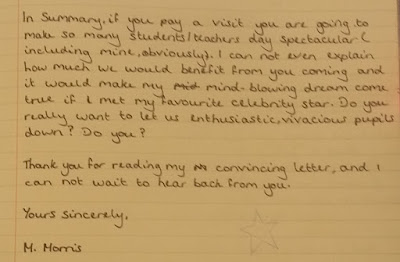 In Summary, if you pay a visit you are going to
make so many students/teachers day spectacular (
including mine, obviously). I can not even explain
how much we would benefit from you coming and
it would make my mind-blowing dream come
true if I met my favourite celebrity star. Do you
really want to let us enthusiastic, vivacious pupils
down? Do you?
Thank you for reading my convincing letter, and I
can not wait to hear back from you.
Yours sincerely,
M. Morris